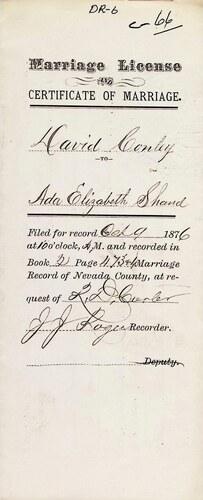 DR-6
66
Marriage License
AND
CERTIFICATE OF MARRIAGE.
David Conley
TO
Ada Elizabeth Shand
Filed for record Oct 9 1876
at 10 o'clock, A.M. and recorded in
Book 2 Page 473 Marriage
Record of Nevada County, at re-
quest of
J J Rogers Recorder.
Deputy.